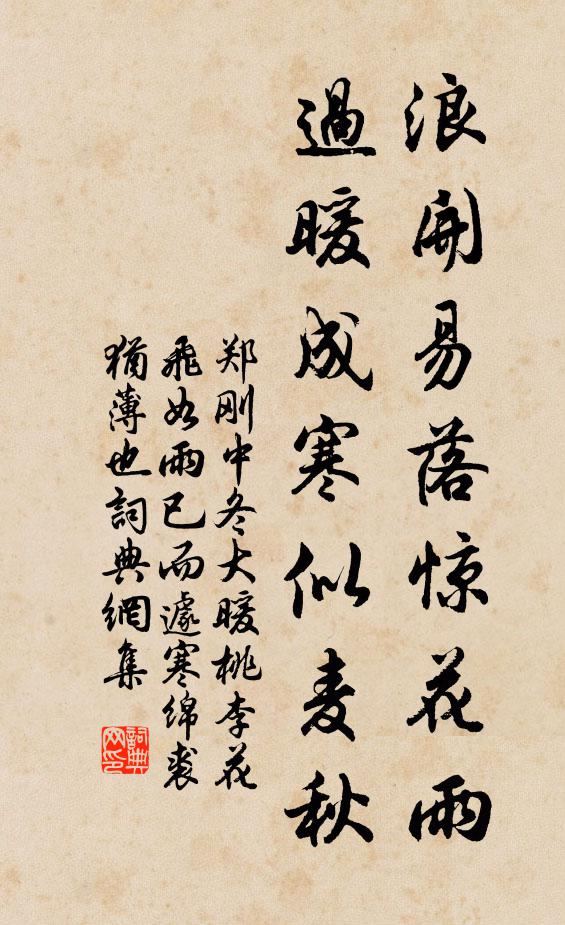 浪開易落惊花雨
過暖成寒似麦秋
郑刚中冬大暖桃李花
飛如雨已而遽寒綿裘
猶薄也詞典網集
詞典网印